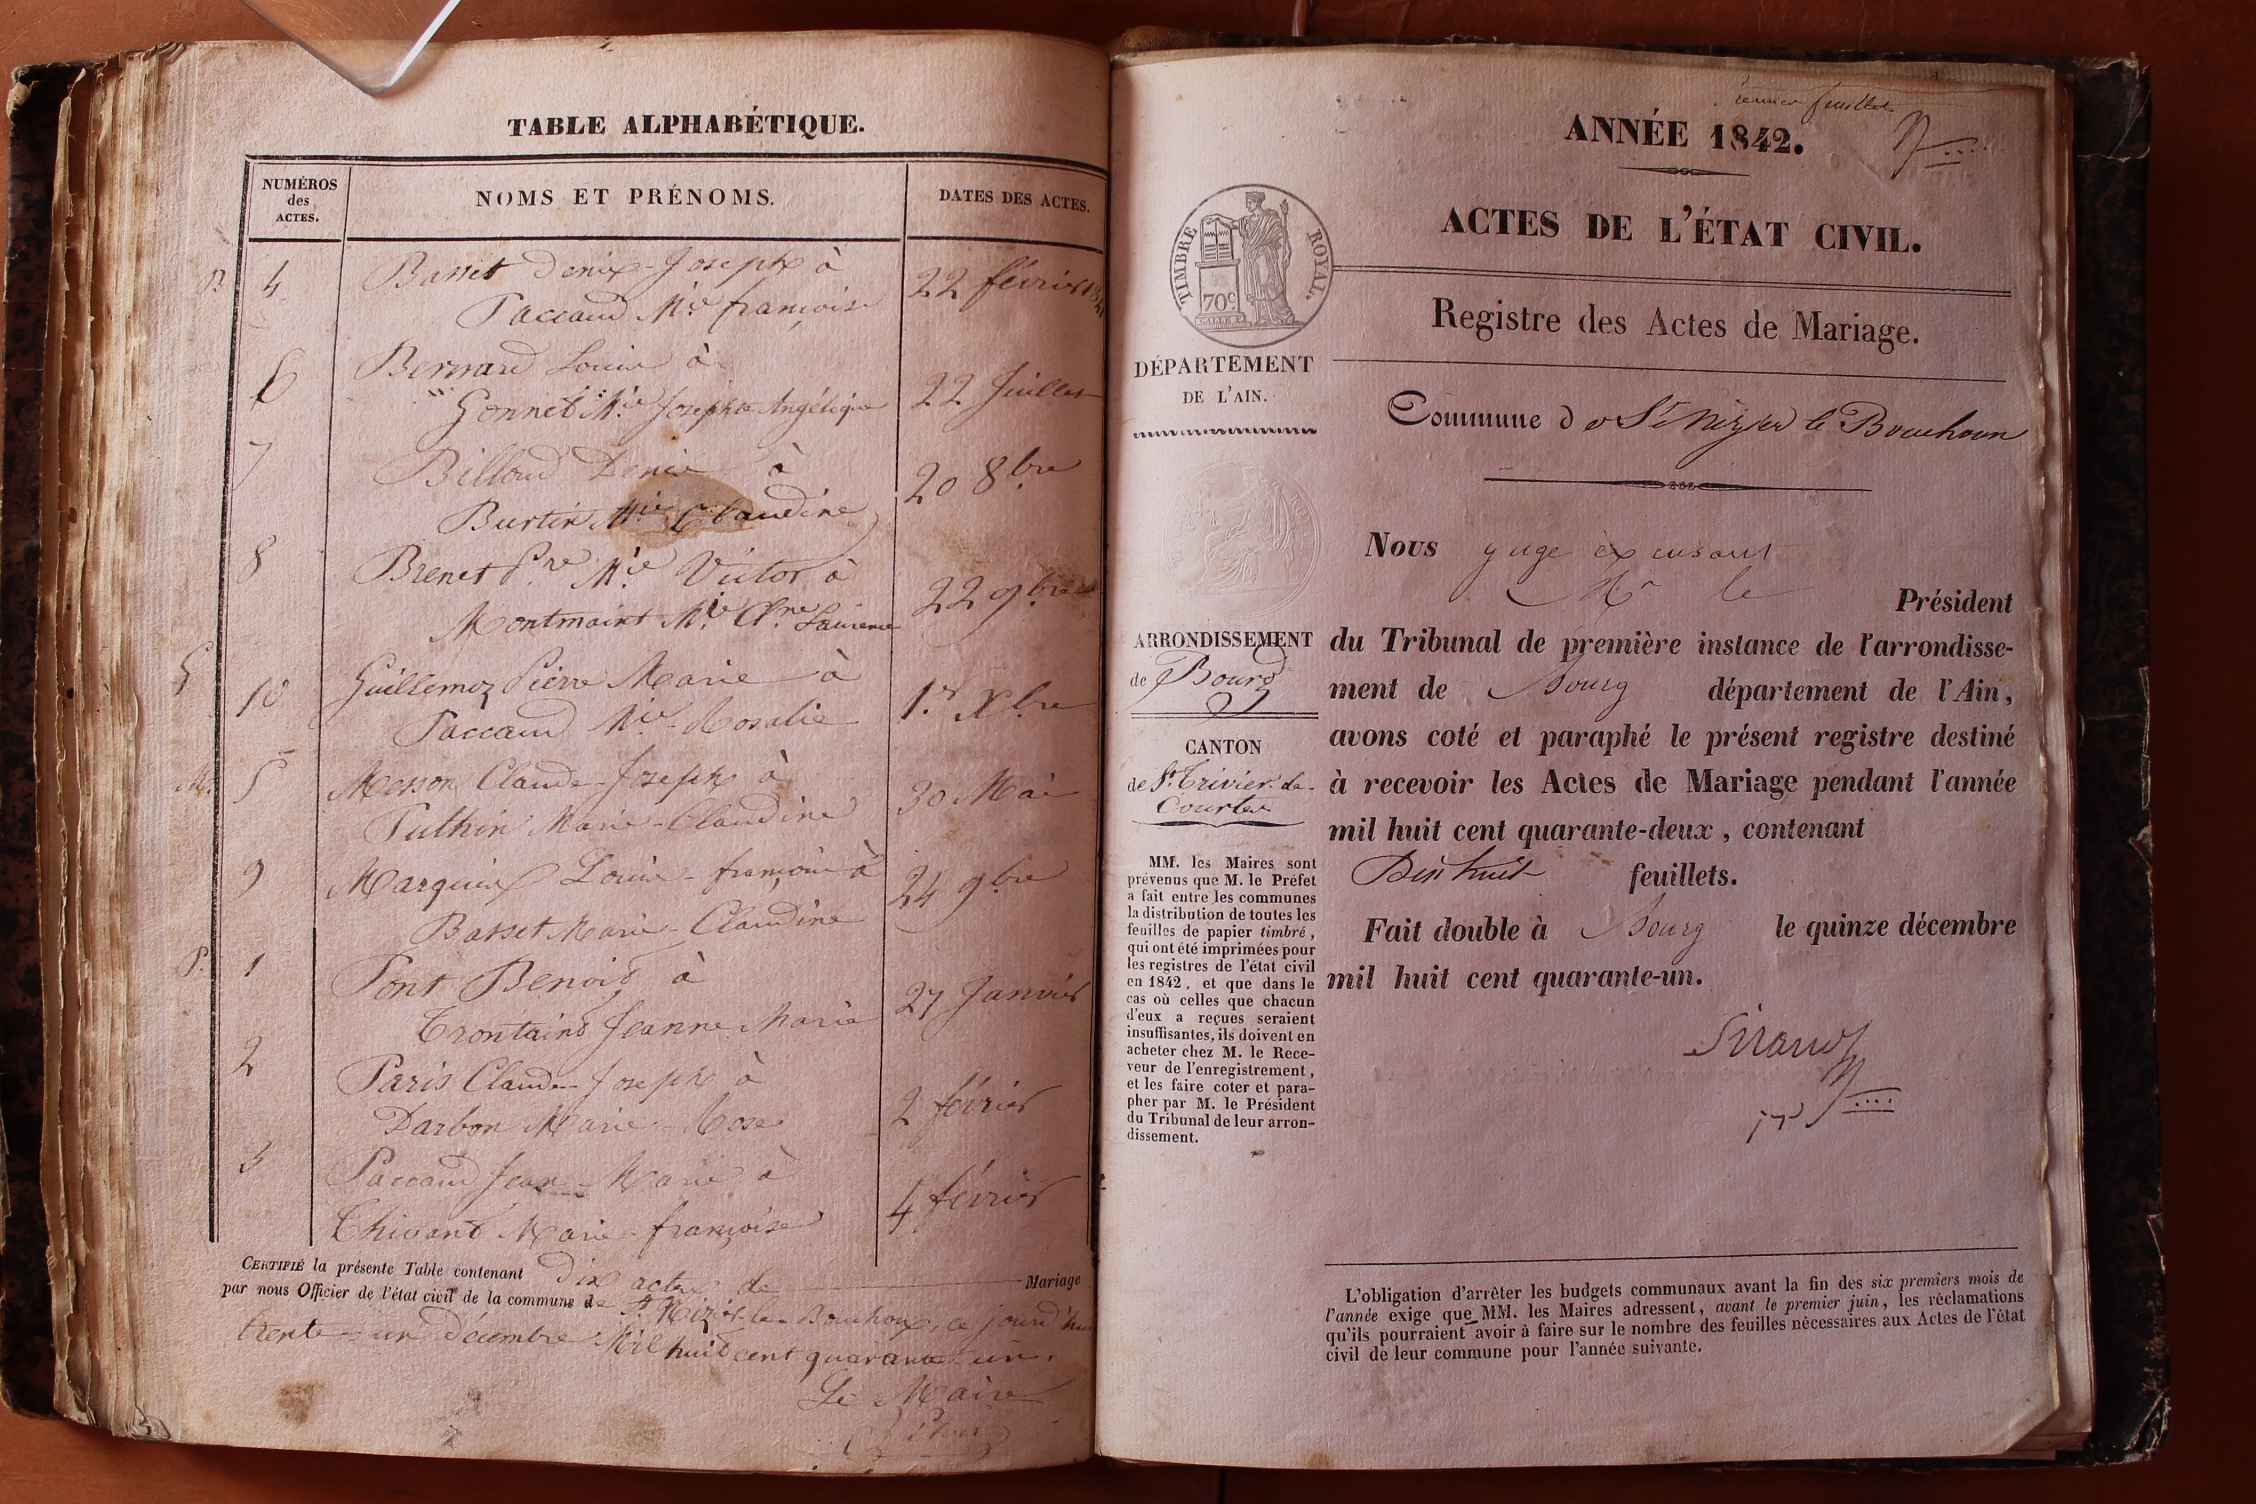 TABLE ALPHABÉTIQUE.
NUMÉROS
des
ACTES.
NOMS ET PRÉNOMS.
DATES DES ACTES.
B 4 Basset Denis-Joseph à
Paccaud Mie françoise 22 février 1841
6 Bernard Louis à
Gonnet Mie Josephte Angélique 22 Juillet
7 Billoud Denis à
Burtin Mie Claudine 20 8bre
8 Brenet Pre Mie Victor à
Montmaint Mie Clne Laurence 22 9bre
G 10 Guillemoz Pierre Marie à
Paccaud Mie Rosalie 1er Xbre
M. 5 Messon Claude-Joseph à
Puthin Marie-Claudine 30 Mai
9 Marquis Louis-françois à
Basset Marie-Claudine 24 9bre
P. 1 Pont Benoit à
Trontaind Jeanne Marie 27 Janvier
2 Paris Claude-Joseph à
Darbon Marie-Rose 2 février
3 Paccaud Jean-Marie à
Marie-françoise 4 février
CERTIFIÉ la présente Table contenant Dix actes de Mariage
par nous Officier de l'état civil de la commune de St Nizier-le-Bouchoux, ce jourd'hui
trente-un décembre Mil huit cent quarante un.
Le Maire
Premier feuillet
ANNÉE 1842.
ACTES DE L'ÉTAT CIVIL.
TIMBRE ROYAL.
70c
Registre des Actes de Mariage.
DÉPARTEMENT
DE L'AIN.
Commune de St Nizier le Bouchoux
Nous juge excusant
Mr le Président
ARRONDISSEMENT
de Bourg
du Tribunal de première instance de l'arrondisse-
ment de Bourg département de l'Ain,
avons coté et paraphé le présent registre destiné
à recevoir les Actes de Mariage pendant l'année
mil huit cent quarante-deux, contenant
Dix huit feuillets.
Fait double à Bourg le quinze décembre
mil huit cent quarante-un.
CANTON
de St Trivier-de-
Courtes
MM. les Maires sont
prévenus que M. le Préfet
a fait entre les communes
la distribution de toutes les
feuilles de papier timbré,
qui ont été imprimées pour
les registres de l'état civil
en 1842, et que dans le
cas où celles que chacun
d'eux a reçues seraient
insuffisantes, ils doivent en
acheter chez M. le Rece-
veur de l'enregistrement,
et les faire coter et para-
pher par M. le Président
du Tribunal de leur arron-
dissement.
L'obligation d'arrêter les budgets communaux avant la fin des six premiers mois de
l'année exige que MM. les Maires adressent, avant le premier juin, les réclamations
qu'ils pourraient avoir à faire sur le nombre des feuilles nécessaires aux Actes de l'état
civil de leur commune pour l'année suivante.